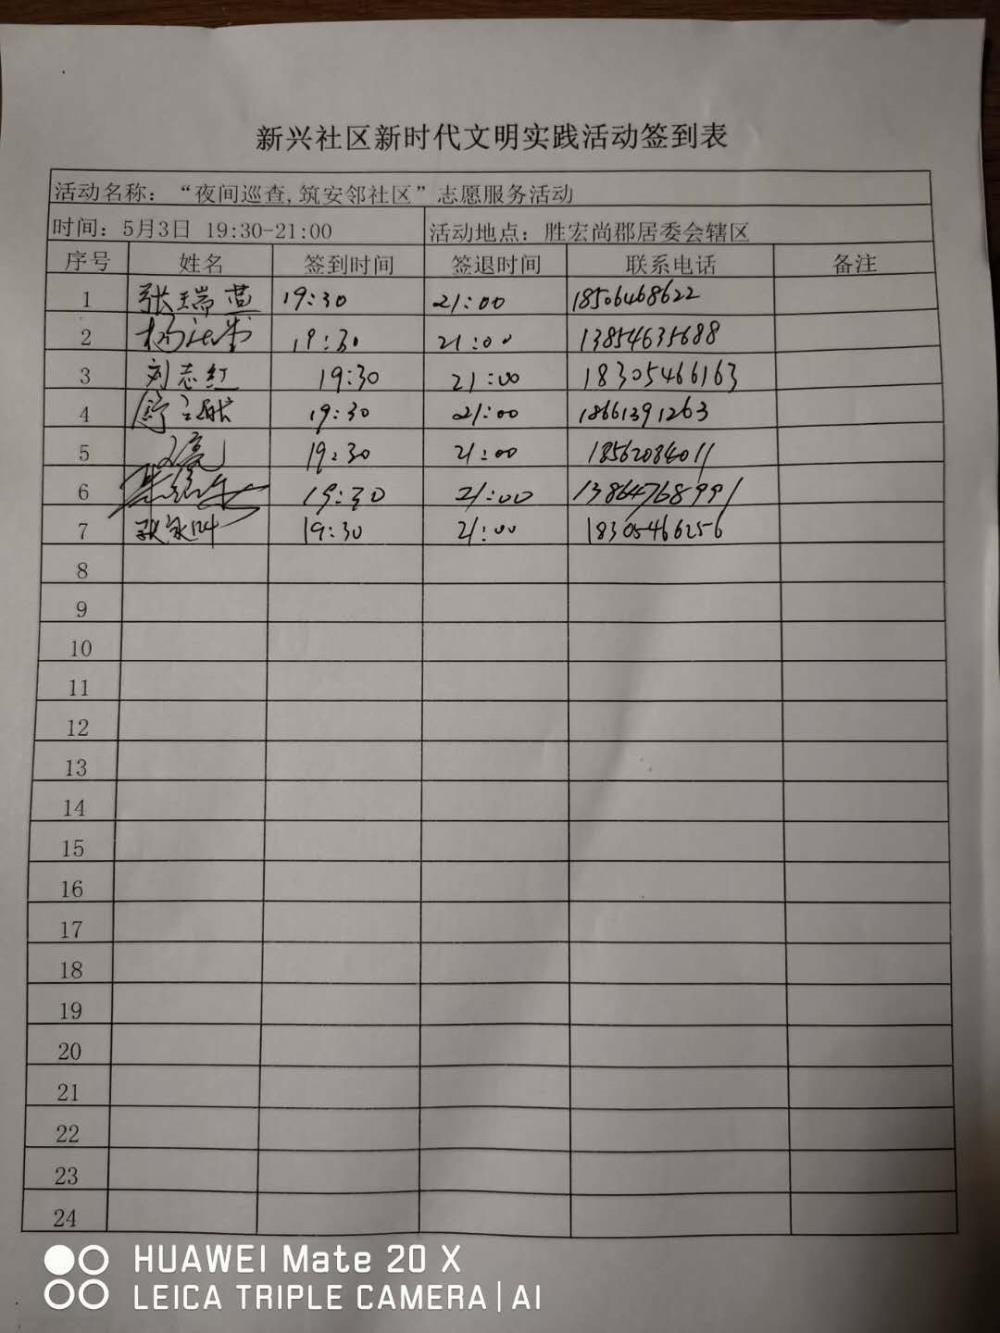 新兴社区新时代文明实践活动签到表
活动名称：“夜间巡查,筑安邻社区”志愿服务活动
时间：5月3日 19:30-21:00 活动地点：胜宏尚郡居委会辖区
序号 姓名 签到时间 签退时间 联系电话 备注
1 张瑞 19:30 21:00 18506468622
2 杨 19:30 21:00 13854635688
3 刘志红 19:30 21:00 18305466163
4 19:30 21:00 18661391263
5 19:30 21:00 18562084011
6 19:30 21:00 13864768991
7 19:30 21:00 18305466256
8
9
10
11
12
13
14
15
16
17
18
19
20
21
22
23
24
HUAWEI Mate 20 X
LEICA TRIPLE CAMERA | AI